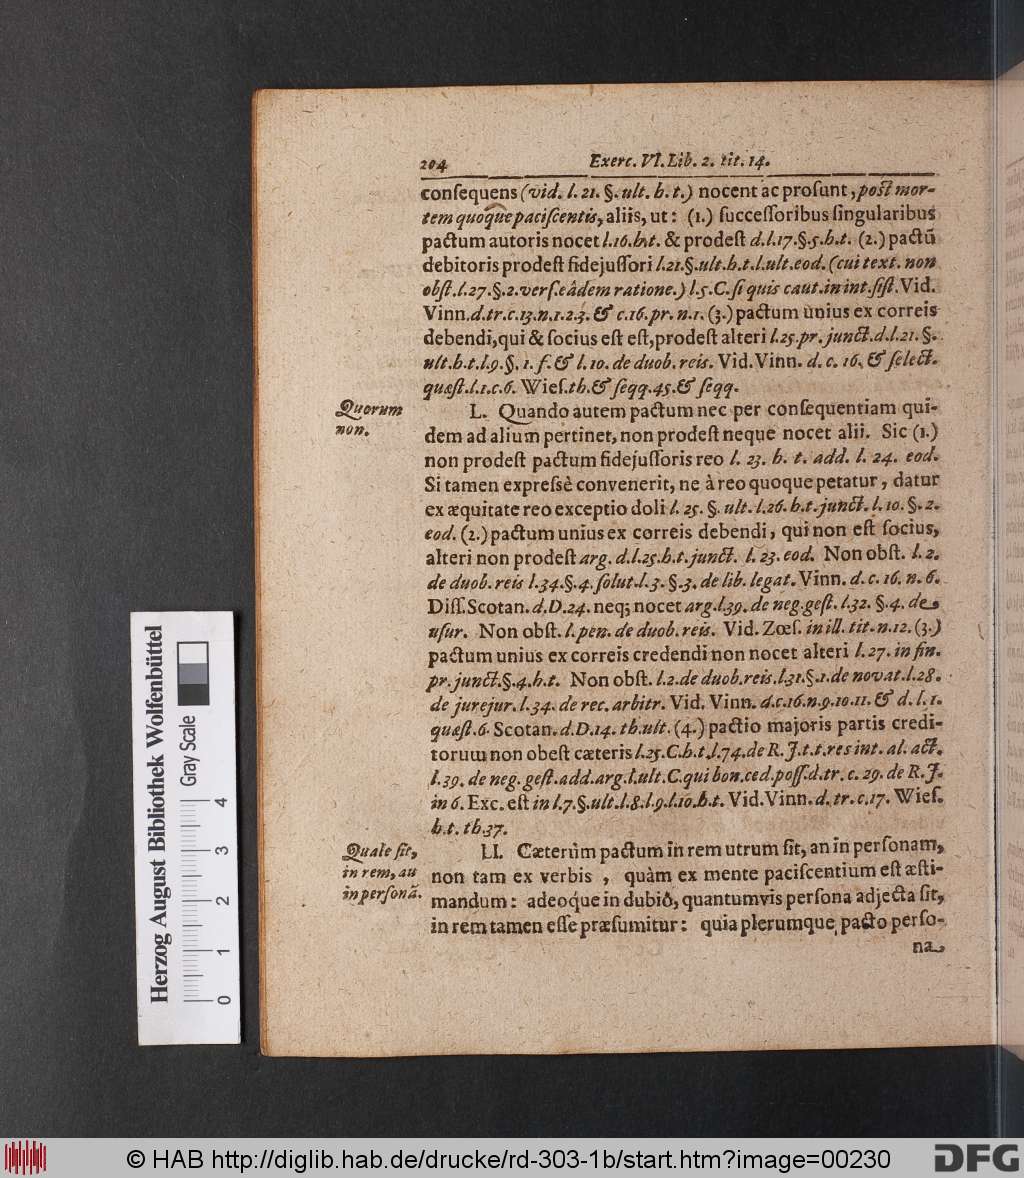 204 Exerc. VI. Lib. 2. tit. 14.
consequens (vid. l. 21. §. ult. h. t.) nocent ac prosunt, post mor-
tem quoque paciscentis, aliis, ut: (1.) successoribus singularibus
pactum autoris nocet l. 16. h. t. & prodest d. l. 17. §. 5. h. t. (2.) pactū
debitoris prodest fidejussori l. 21. §. ult. h. t. l. ult. eod. (cui text. non
obst. l. 27. §. 2. vers. eâdem ratione.) l. 5. C. si quis caut. in int. sist. Vid.
Vinn. d. tr. c. 13. n. 1. 2. 3. & c. 16. pr. n. 1. (3.) pactum unius ex correis
debendi, qui & socius est est, prodest alteri l. 25. pr. junct. d. l. 21. §.
ult. h. t. l. 9. §. 1. f. & l. 10. de duob. reis. Vid. Vinn. d. c. 16. & select.
quæst. l. 1. c. 6. Wies. th. & seqq. 45. & seqq.
Quorum
non.
L. Quando autem pactum nec per consequentiam qui-
dem ad alium pertinet, non prodest neque nocet alii. Sic (1.)
non prodest pactum fidejussoris reo l. 23. h. t. add. l. 24. eod.
Si tamen expressè convenerit, ne à reo quoque petatur, datur
ex æquitate reo exceptio doli l. 25. §. ult. l. 26. h. t. junct. l. 10. §. 2.
eod. (2.) pactum unius ex correis debendi, qui non est socius,
alteri non prodest arg. d. l. 25. h. t. junct. l. 23. eod. Non obst. l. 2.
de duob. reis l. 34. §. 4. solut. l. 3. §. 3. de lib. legat. Vinn. d. c. 16. n. 6.
Diss. Scotan. d. D. 24. neq; nocet arg. l. 39. de neg. gest. l. 32. §. 4. de
usur. Non obst. l. pen. de duob. reis. Vid. Zœs. in ill. tit. n. 12. (3.)
pactum unius ex correis credendi non nocet alteri l. 27. in fin.
pr. junct. §. 4. h. t. Non obst. l. 2. de duob. reis. l. 31. §. 1. de novat. l. 28.
de jurejur. l. 34. de rec. arbitr. Vid. Vinn. d. c. 16. n. 9. 10. 11. & d. l. 1.
quæst. 6. Scotan. d. D. 14. th. ult. (4.) pactio majoris partis credi-
torum non obest cæteris l. 25. C. h. t. l. 74. de R. J. t. t. res int. al. act.
l. 39. de neg. gest. add. arg. l. ult. C. qui bon. ced. poss. d. tr. c. 29. de R. J.
in 6. Exc. est in l. 7. §. ult. l. 8. l. 9. l. 10. h. t. Vid. Vinn. d. tr. c. 17. Wies.
h. t. th. 37.
Quale sit,
in rem, an
in personā.
LI. Cæterùm pactum in rem utrum sit, an in personam,
non tam ex verbis, quàm ex mente paciscentium est æsti-
mandum: adeoque in dubiô, quantumvis persona adjecta sit,
in rem tamen esse præsumitur: quia plerumque pacto perso-
na
Herzog August Bibliothek Wolfenbüttel
Gray Scale
0 1 2 3 4
© HAB http://diglib.hab.de/drucke/rd-303-1b/start.htm?image=00230
DFG